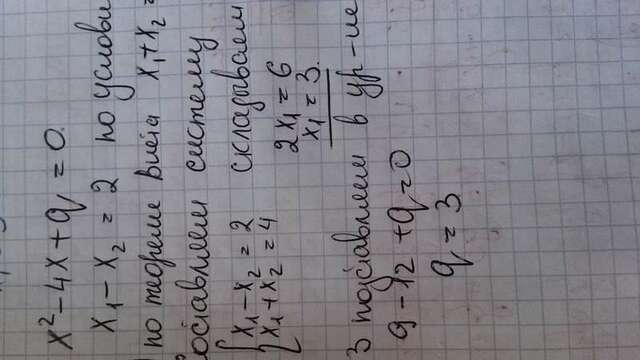 x² - 4x + q = 0.
x₁ - x₂ = 2 по услови
по теореме Виета x₁ + x₂ =
составляем систему
{ x₁ - x₂ = 2 складываем
x₁ + x₂ = 4
2x₁ = 6
x₁ = 3.
3 подставляем в ур-ие
9 - 12 + q = 0
q = 3